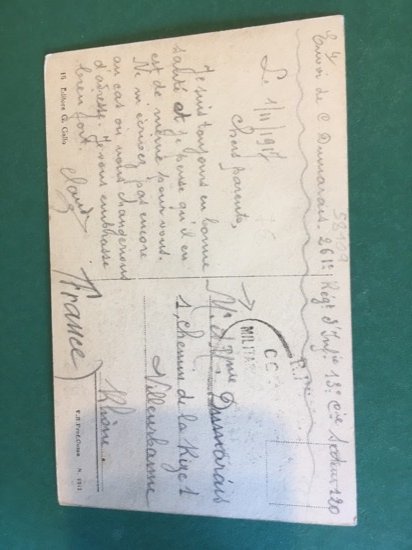 Envoi de C. Dumarais. 261e Régt d'Infie 13e Cie Secteur 220
58109
Le 1/11/1917
Chers parents,
Je suis toujours en bonne
santé et je pense qu'il en
est de même pour vous.
Ne m'écrivez pas encore
au cas où vous changeriez
d'adresse. Je vous embrasse
bien fort. Claude
16 Editore G. Gallo
MILITA
Mr et Mme Dumarais
1, chemin de la Rize
Villeurbanne
Rhône.
(France)